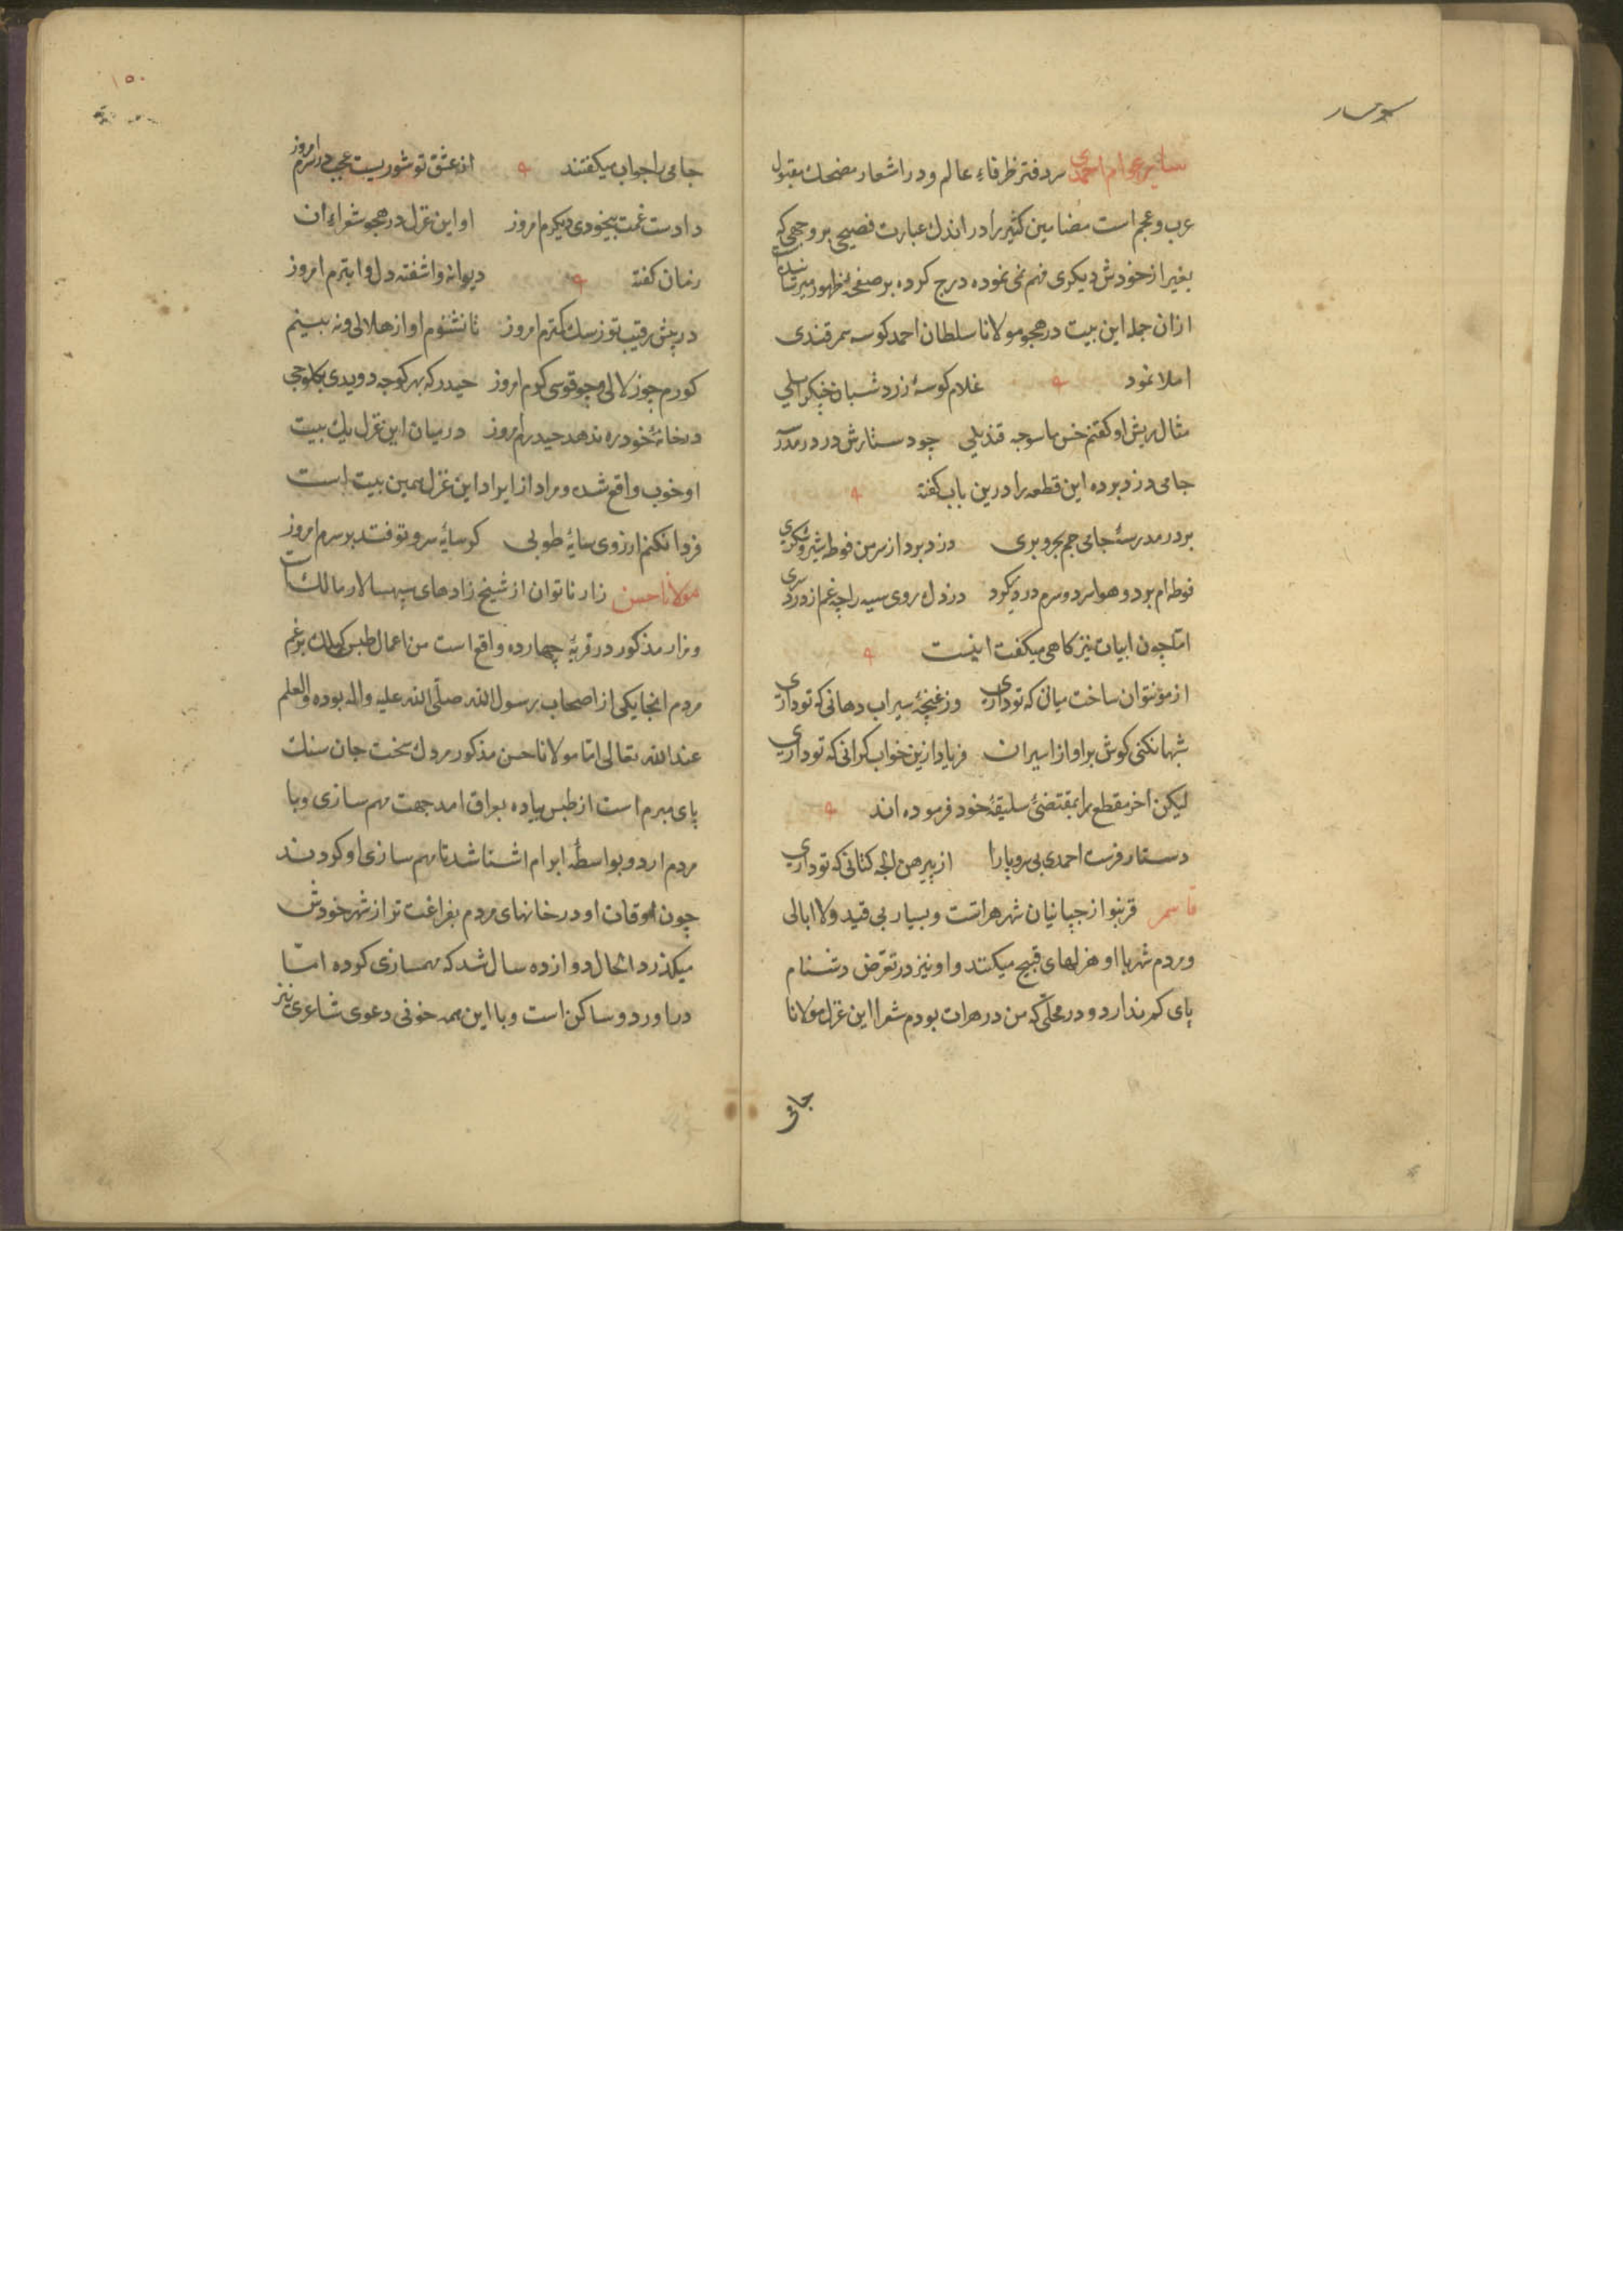 سایر عوام احمدی سر دفتر ظرفاء عالم و در اشعار مضحك مقبول
عرب و عجم است مضامین کثیر را در اندك عبارت فصیح بر وجهی که
بغیر از خودش دیکری فهم نمی نموده درج کرده بر صفحهٔ ظهور میرسانیده
ازان جمله این بیت در هجو مولانا سلطان احمد کوسه سمرقندی
املا نمود غلام کوسهٔ زرد
مثال ریش او کفتم چو دستارش در در مدرسه
جامی دزد برده این قطعه را درین باب کفته
بر در مدرسهٔ جامی جم بحر و بری دزد برد از سر من فوطهٔ شیر و شکری
فوطه ام بود و هوا سرد و سرم درد بکرد دزد دل روی سیه را چه غم از درد سری
امّا چون ابیات نیز کاهی میگفت اینست
از مو نتوان ساخت میان که تو داری وز غنچهٔ سیراب دهانی که تو داری
شبها نکنی کوش بر اواز اسیران فریاد ازین خواب کرانی که تو داری
لیکن اخر مقطع را بمقتضئ سلیقهٔ خود فرموده اند
دستار فرست احمدی بی سر و پا را از پیرهن الجه کتانی که تو داری
قاسم قرنبو از جپانیان شهر هراتست و بسیار بی قید و لا ابالی
و مردم شهر با او هزلهای قبیح میکنند و او نیز در تعرّض دشنام
پای کم ندارد و در محلّی که من در هرات بودم شعرا این غزل مولانا
جامی
۱۵۰
جامی را جواب میکفتند از عشق تو شوریست عجب در سرم امروز
دادست غمت بیخودی دیکرم امروز او این غزل در هجو شعراء ان
زمان کفته دیوانه و اشفته دل و ابترم امروز
در پیش رقیب تو ز سك کمترم امروز تا نشنوم اواز هلالی و نه بینم
کورم چو زلالی و چو قوسی کرم امروز حیدر که بهر کوچه دویدی
در خانهٔ خود ره ندهد حیدرم امروز در میان این غزل یك بیت
او خوب واقع شده و مراد از ایراد این غزل همین بیت است
فردا نکنم ارزوی سایهٔ طوبی کر سایهٔ سرو تو فتد بر سرم امروز
مولانا حسن زار ناتوان از شیخ زادهای سپهسالار مالك است
و مزار مذکور در قریهٔ چهارده واقع است من اعمال طبس کیلك بزعم
مردم انجا یکی از اصحاب رسول الله صلّی الله علیه و اله بوده و العلم
عند الله تعالی امّا مولانا حسن مذکور مردك سخت جان سنك
پای مبرم است از طبس پیاده بعراق امد جهت مهم سازی و با
مردم اردو بواسطهٔ ابرام اشنا شد تا مهم سازی او کردند
چون اوقات او در خانهای مردم بفراغت تر از شهر خودش
میکذرد الحال دوازده سال شد که مهمسازی کرده امّا
در اوردو ساکن است و با این همه خوبی دعوی شاعری نیز